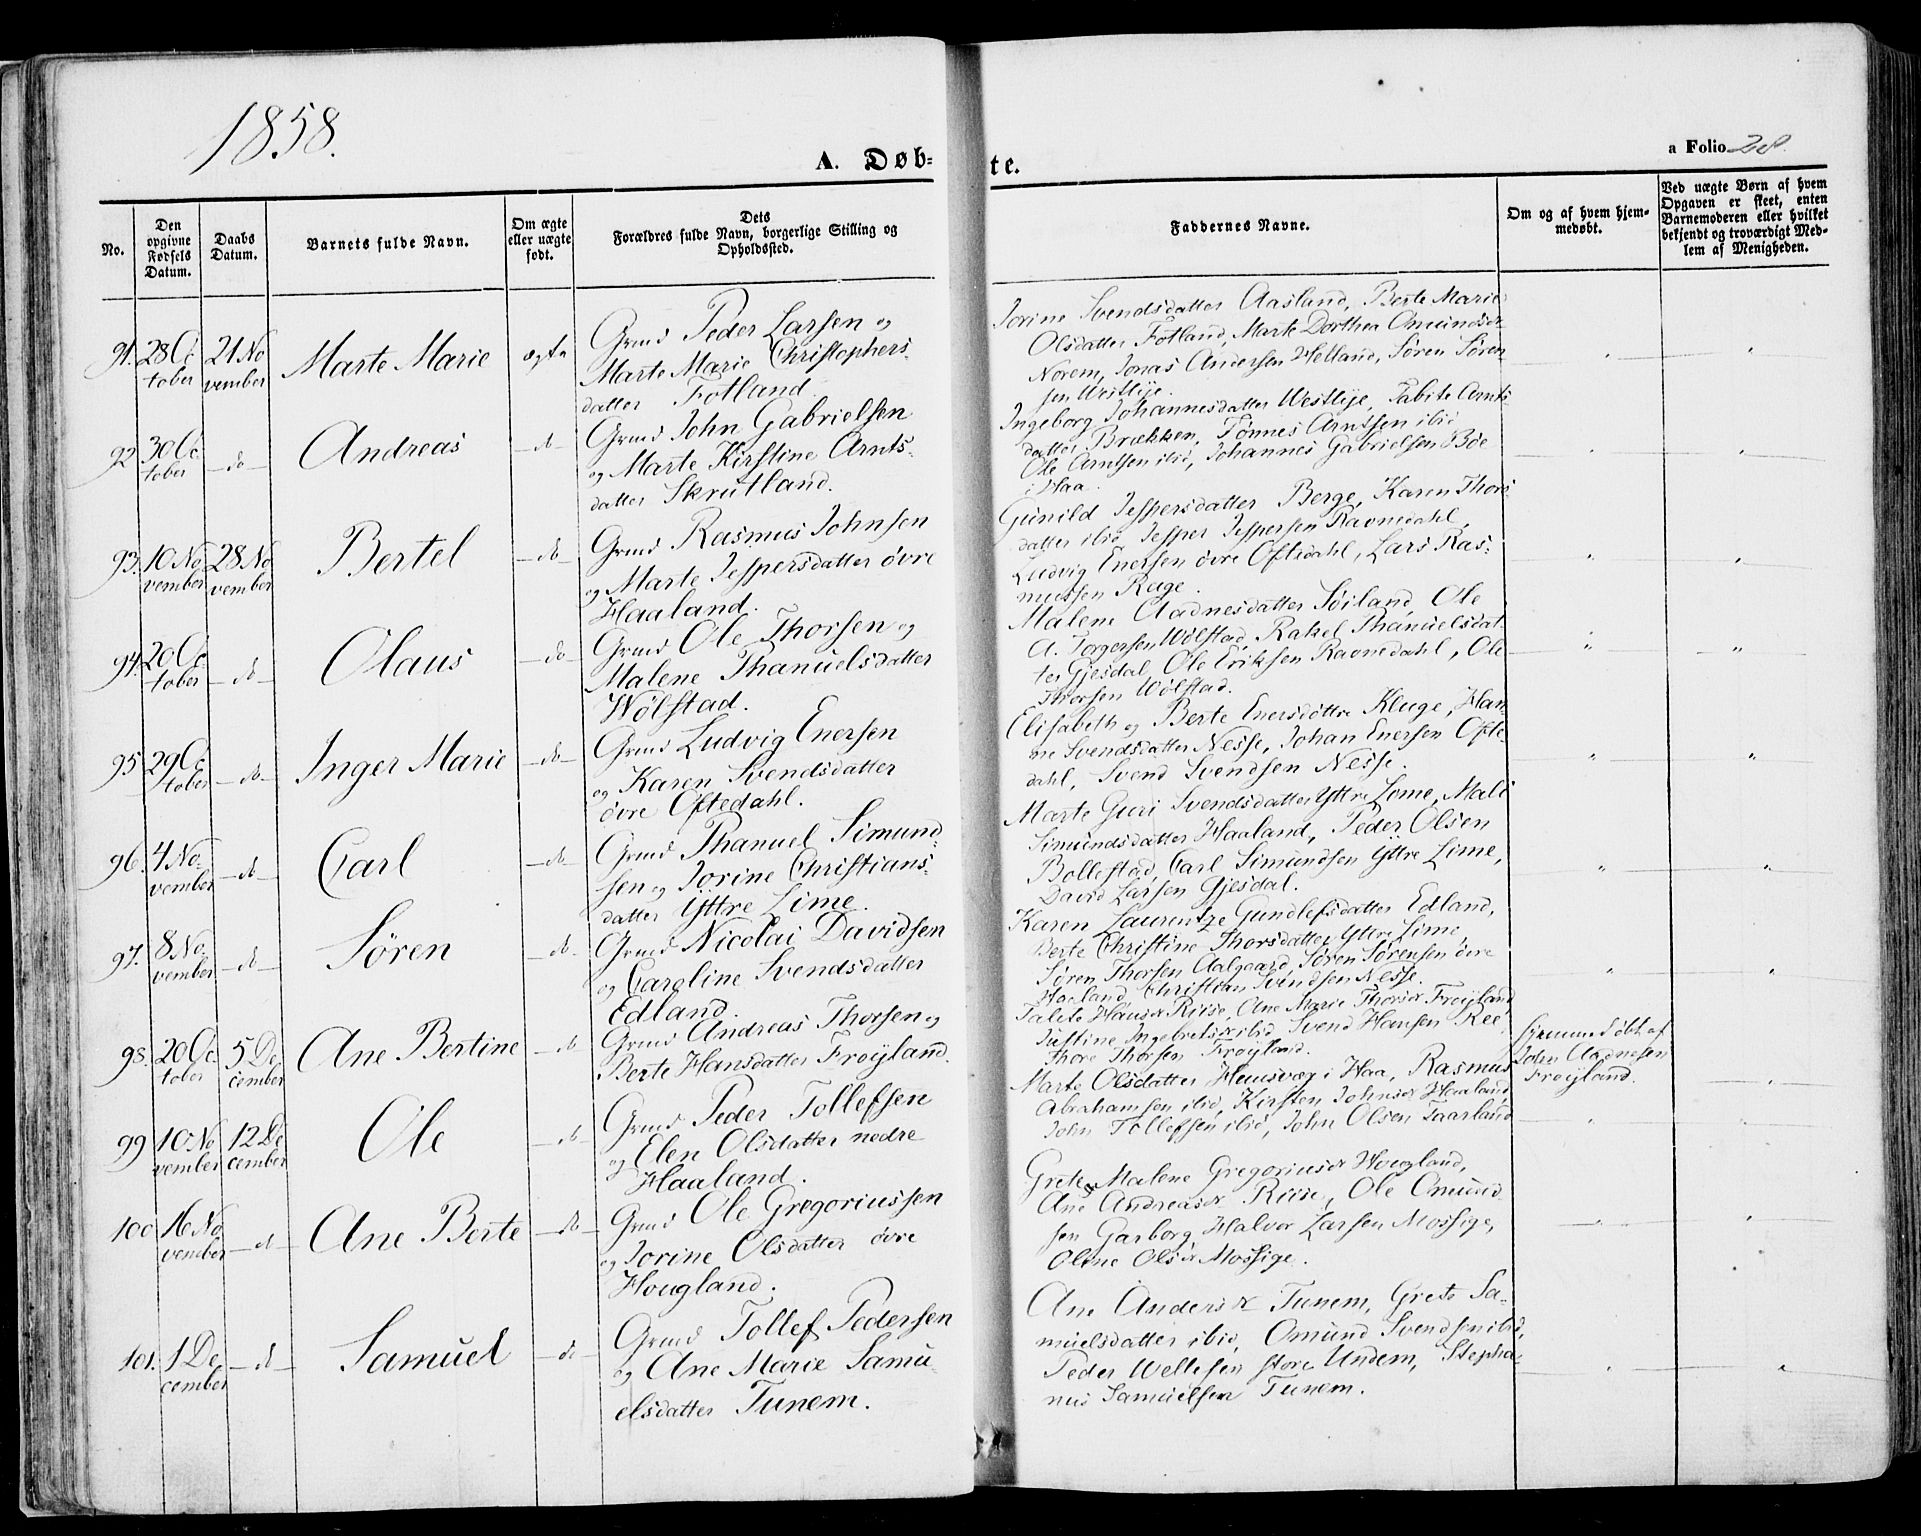 1858.
A. Døb-
te.
a Folio 28
No.
Den
opgivne
Fødsels
Datum.
Daabs
Datum.
Barnets fulde Navn.
Om ægte
eller uægte
født.
Dets
Forældres fulde Navn, borgerlige Stilling og
Opholdssted.
Faddernes Navne.
Om og af hvem hjem-
medøbt.
Ved uægte Børn af hvem
Opgaven er skeet, enten
Barnemoderen eller hvilket
bekjendt og troværdigt Med-
lem af Menigheden.
91. 28 Oc
tober
21 No
vember
Marte Marie
ægte
Grmd Peder Larsen og
Marte Marie Christophers-
datter Fotland
Jorine Svendsdatter Aasland, Berte Marie
Olsdatter Fotland, Marte Dorthea Omundsdr
Norem, Jonas Andersen Helland, Søren Søren
sen Westlye.
92 30 Oc
tober
do
Andreas
do
Grmd John Gabrielsen
og Marte Kirstine Arnts-
datter Skrutland.
Ingeborg Johannesdatter Westlye, Tabite Arnts
datter Brækken, Tønnes Arntsen ibid
Ole Arntsen ibid, Johannes Gabrielsen Bøe
i Haa.
93. 10 No
vember
28 No
vember
Bertel
do
Grmd Rasmus Johnsen
og Marte Jespersdatter øvre
Haaland.
Gunild Jespersdatter Berge, Karen Thors
datter ibid Jesper Jespersen Ravnedahl,
Ludvig Enersen øvre Oftedahl, Lars Ras-
mussen Rage.
94. 20 Oc
tober
do
Olaus
do
Grmd Ole Thorsen og
Malene Thanuelsdatter
Wølstad.
Malene Aadnesdatter Søiland, Ole
A. Torgersen Wølstad, Rakel Thanuelsdat
ter Gjesdal, Ole Eriksen Ravnedahl, Ole
Thorsen Wølstad.
95 29 Oc
tober
do
Inger Marie
do
Grmd Ludvig Enersen
og Karen Svendsdatter
øvre Oftedahl.
Elisabeth og Berte Enersdøttre Kluge, Han
ne Svendsdatter Nesse, Johan Enersen Ofte-
dahl, Svend Svendsen Nesse.
96. 4 No-
vember
do
Carl
do
Grmd Thanuel Simund-
sen og Jorine Christians-
datter Yttre Lime.
Marte Guri Svendsdatter Yttre Lime, Mali
Simundsdatter Haaland, Peder Olsen
Bollestad, Carl Simundsen Yttre Lime,
David Larsen Gjesdal.
97. 8 No
vember
do
Søren
do
Grmd Nicolai Davidsen
og Caroline Svendsdatter
Edland.
Karen Laurentze Gundlefsdatter Edland,
Berte Christine Thorsdatter Yttre Lime
Søren Thorsen Aalgaard, Søren Sørensen øvre
Haaland, Christian Svendsen Nesse.
98. 20 Oc
tober
5 De
cember
Ane Bertine
do
Grmd Andreas Thorsen og
Berte Hansdatter Frøyland.
Talite Hansdr Riise, Ane Marie Thorsdr Frøyland
Justine Ingebretsdr ibid, Svend Hansen Ree
Thore Thorsen Frøyland.
Hjemmedøbt af
John Aadnesen
Frøyland.
99 10 No
vember
12 De
cember
Ole
do
Grmd Peder Tollefsen
og Elen Olsdatter nedre
Haaland.
Marte Olsdatter Heusvæg i Haa, Rasmus
Abrahamsen ibid, Kirsten Johnsdr Haaland
John Tollefsen ibid, John Olsen Taarland
100 16 No
vember
do
Ane Berte
do
Grmd Ole Gregoriussen
og Jorine Olsdatter øvre
Hougland.
Grete Malene Gregoriusdr Hougland,
Ane Andreasdr Riise, Ole Omund
sen Garborg, Halvor Larsen Mossige,
Oline Olsdr Mossige.
101. 1 De
cember
do
Samuel
do
Grmd Tollef Pedersen
og Ane Marie Samu-
elsdatter Tunem.
Ane Andersdr Tunem, Grete Sa-
muelsdatter ibid, Omund Svendsen ibid,
Peder Wellesen store Undem, Stepha-
nus Samuelsen Tunem.